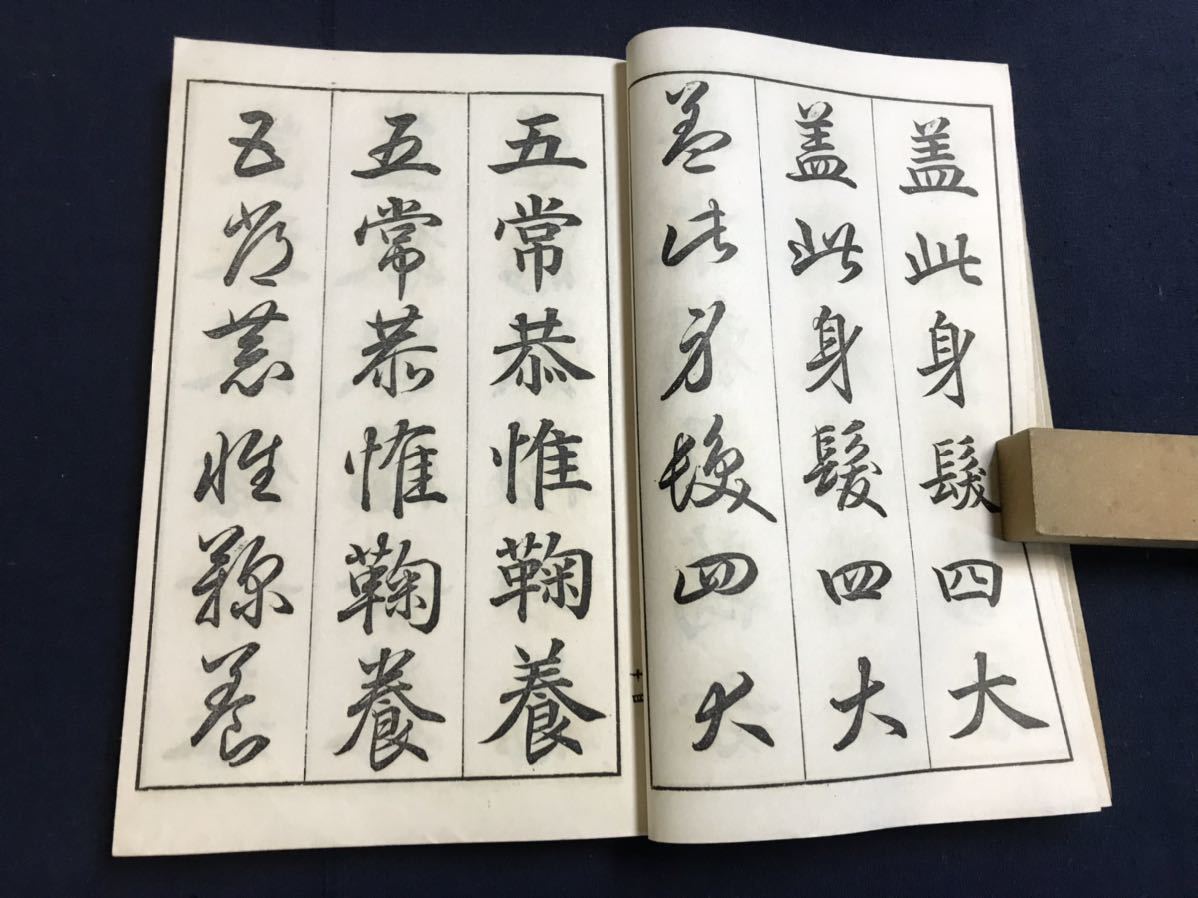 盖此身髮四大
盖此身髮四大
盖此身髮四大
五常恭惟鞠養
五常恭惟鞠養
五常恭惟鞠養
十四